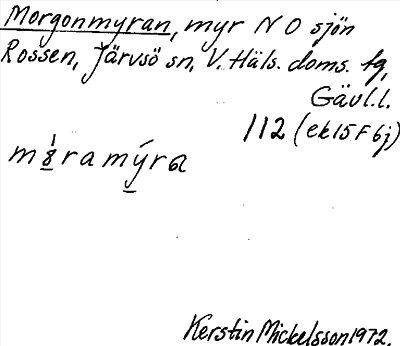 Morgonmyran, myr N O sjön
Rossen, Järvsö sn, V. Häls. doms. tg,
Gävl.l.
112 (ek 15 F 6j)
Kerstin Mickelsson 1972.